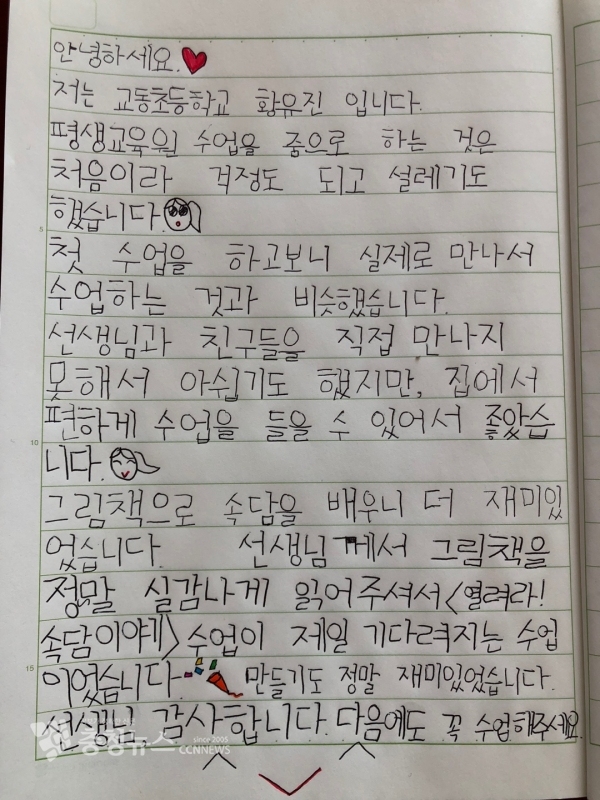 안녕하세요.
저는 교동초등학교 황유진 입니다.
평생교육원 수업을 줌으로 하는 것은
처음이라 걱정도 되고 설레기도
5
했습니다.
첫 수업을 하고보니 실제로 만나서
수업하는 것과 비슷했습니다.
선생님과 친구들을 직접 만나지
못해서 아쉽기도 했지만, 집에서
10
편하게 수업을 들을 수 있어서 좋았습
니다.
그림책으로 속담을 배우니 더 재미있
었습니다. 선생님께서 그림책을
정말 실감나게 읽어주셔서<열려라!
속담이야기> 수업이 제일 기다려지는 수업
15
이었습니다. 만들기도 정말 재미있었습니다.
선생님 감사합니다. 다음에도 꼭 수업해주세요.
충청뉴스 since 2005 CCNNEWS